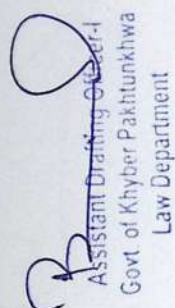 Assistant Drafting Officer-I
Govt. of Khyber Pakhtunkhwa
Law Department